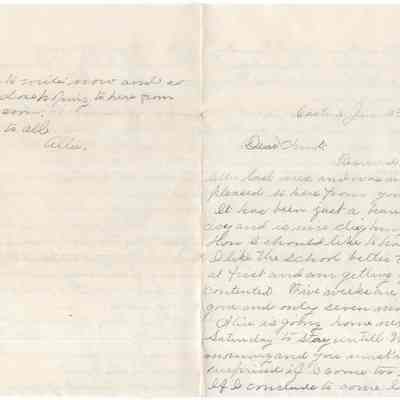 to write now and so
close hoping to here from
soon.
to all
Allie.
Dear Aunt
last and was
pleased to here from you
It has been just a beau
day and is nice
How I should like to
I like the school better
at first and am getting
contented. Five weeks are
gone and only seven mo
is going home next
Saturday to stay untill M
morning and you must
surprised if I come too
If I conclude to come I